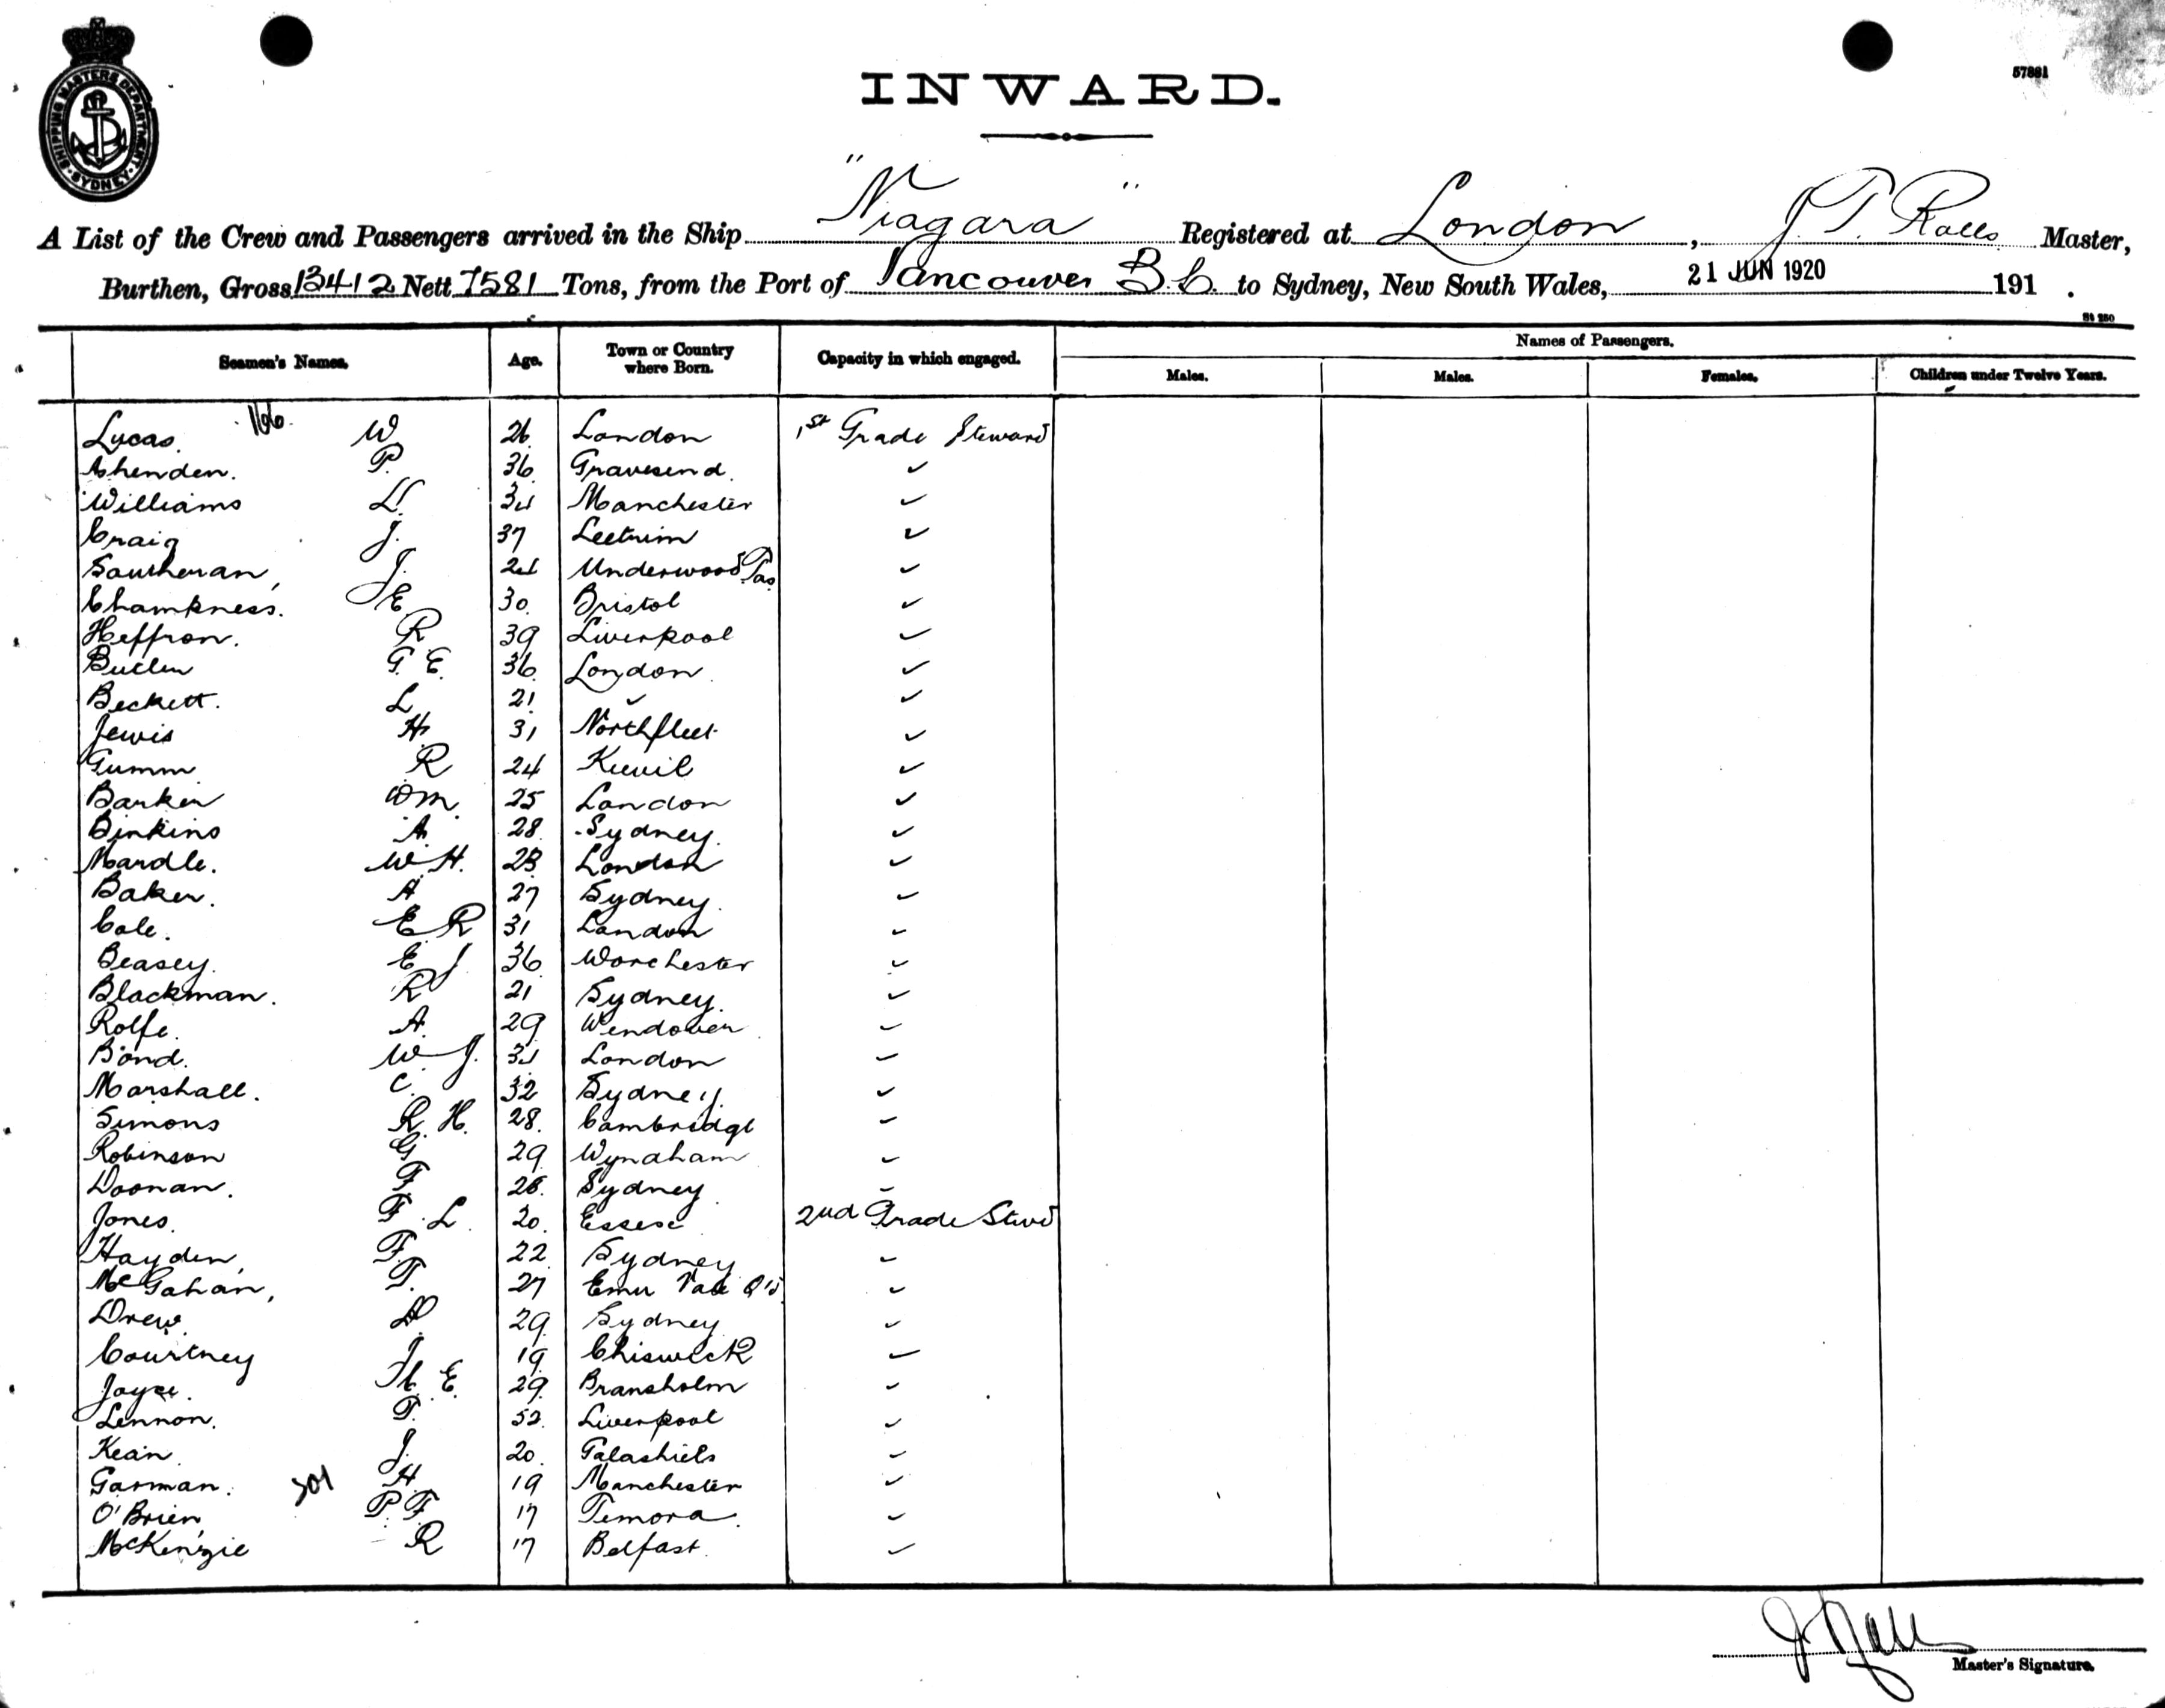 SHIPPING MASTERS DEPARTMENT SYDNEY
57881
INWARD.
A List of the Crew and Passengers arrived in the Ship "Niagara" Registered at London, J. T. Rolls Master,
Burthen, Gross 13412 Nett 7581 Tons, from the Port of Vancouver B.C. to Sydney, New South Wales, 21 JUN 1920 191 .
St 250
Seamen's Names. Age. Town or Country where Born. Capacity in which engaged. Names of Passengers.
Males. Males. Females. Children under Twelve Years.
Lucas. W 26 London 1st Grade Steward
Ashenden. P. 36 Gravesend. ✓
Williams L. 34 Manchester ✓
Craig J. 37 Leetrim ✓
Southeran, J. 24 Underwood Tas ✓
Chamkness. E 30. Bristol ✓
Heffron. R 39 Liverpool ✓
Butler G. E. 36 London. ✓
Beckett. L 21 ✓ ✓
Jewis H 31 Northfleet ✓
Gumm R 24 Keevil ✓
Barker Wm. 25 London ✓
Binkins A. 28. Sydney. ✓
Mardle. W. H. 23 London ✓
Baker. A 27 Sydney. ✓
Cole. E R 31 London ✓
Beasey. E J 36 Worchester ✓
Blackman. R 21 Sydney. ✓
Rolfe. A. 29 Wendover ✓
Bond. W. J. 34 London ✓
Marshall. C. 32 Sydney. ✓
Simons R. H. 28. Cambridge ✓
Robinson G 29 Wyndham ✓
Doonan. F 26. Sydney ✓
Jones. F. L. 20. Essex 2nd Grade Stwd
Hayden, F. 22 Sydney ✓
McGahan, T. 27 Emu Vale Q'd ✓
Drew. D 29. Sydney ✓
Courtney J 19. Chiswick ✓
Joyce. E. 29. Bransholm ✓
Lennon. T. 52. Liverpool ✓
Kean. J. 20. Galashiels ✓
Garman. 301 H 19 Manchester ✓
O'Brien, P. F. 17 Temora. ✓
McKenzie R 17 Belfast. ✓
J Rolls
Master's Signature.